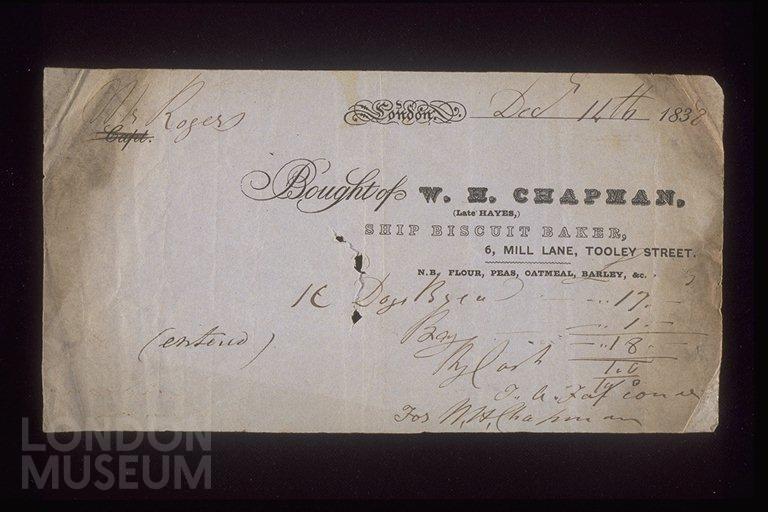 Mr Rogers
Capt.
London. Decr 14th 183
Bought of W. H. CHAPMAN,
(Late HAYES,)
SHIP BISCUIT BAKER,
6, MILL LANE, TOOLEY STREET.
N.B. FLOUR, PEAS, OATMEAL, BARLEY, &c.
1C Dogs 17.
Bag 1.
(entered) 18.
By Cash 1.0
For W. H. Chapman
LONDON
MUSEUM